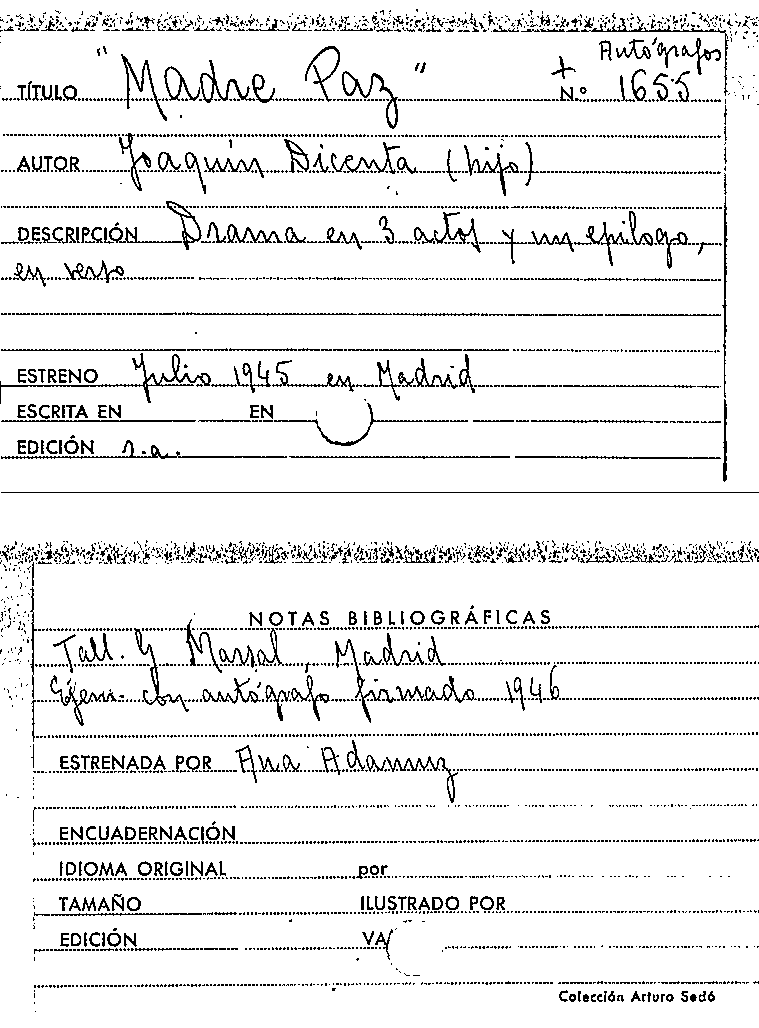 Autógrafos
TÍTULO "Madre Paz" + N.º 1655
AUTOR Joaquín Dicenta (hijo)
DESCRIPCIÓN Drama en 3 actos y un epílogo,
en verso
ESTRENO Julio 1945 en Madrid
ESCRITA EN EN
EDICIÓN s.a.
NOTAS BIBLIOGRÁFICAS
Tall. G Marsal, Madrid
Ejem. con autógrafo firmado 1946
ESTRENADA POR Ana Adamuz
ENCUADERNACIÓN
IDIOMA ORIGINAL por
TAMAÑO ILUSTRADO POR
EDICIÓN VA
Colección Arturo Sedó